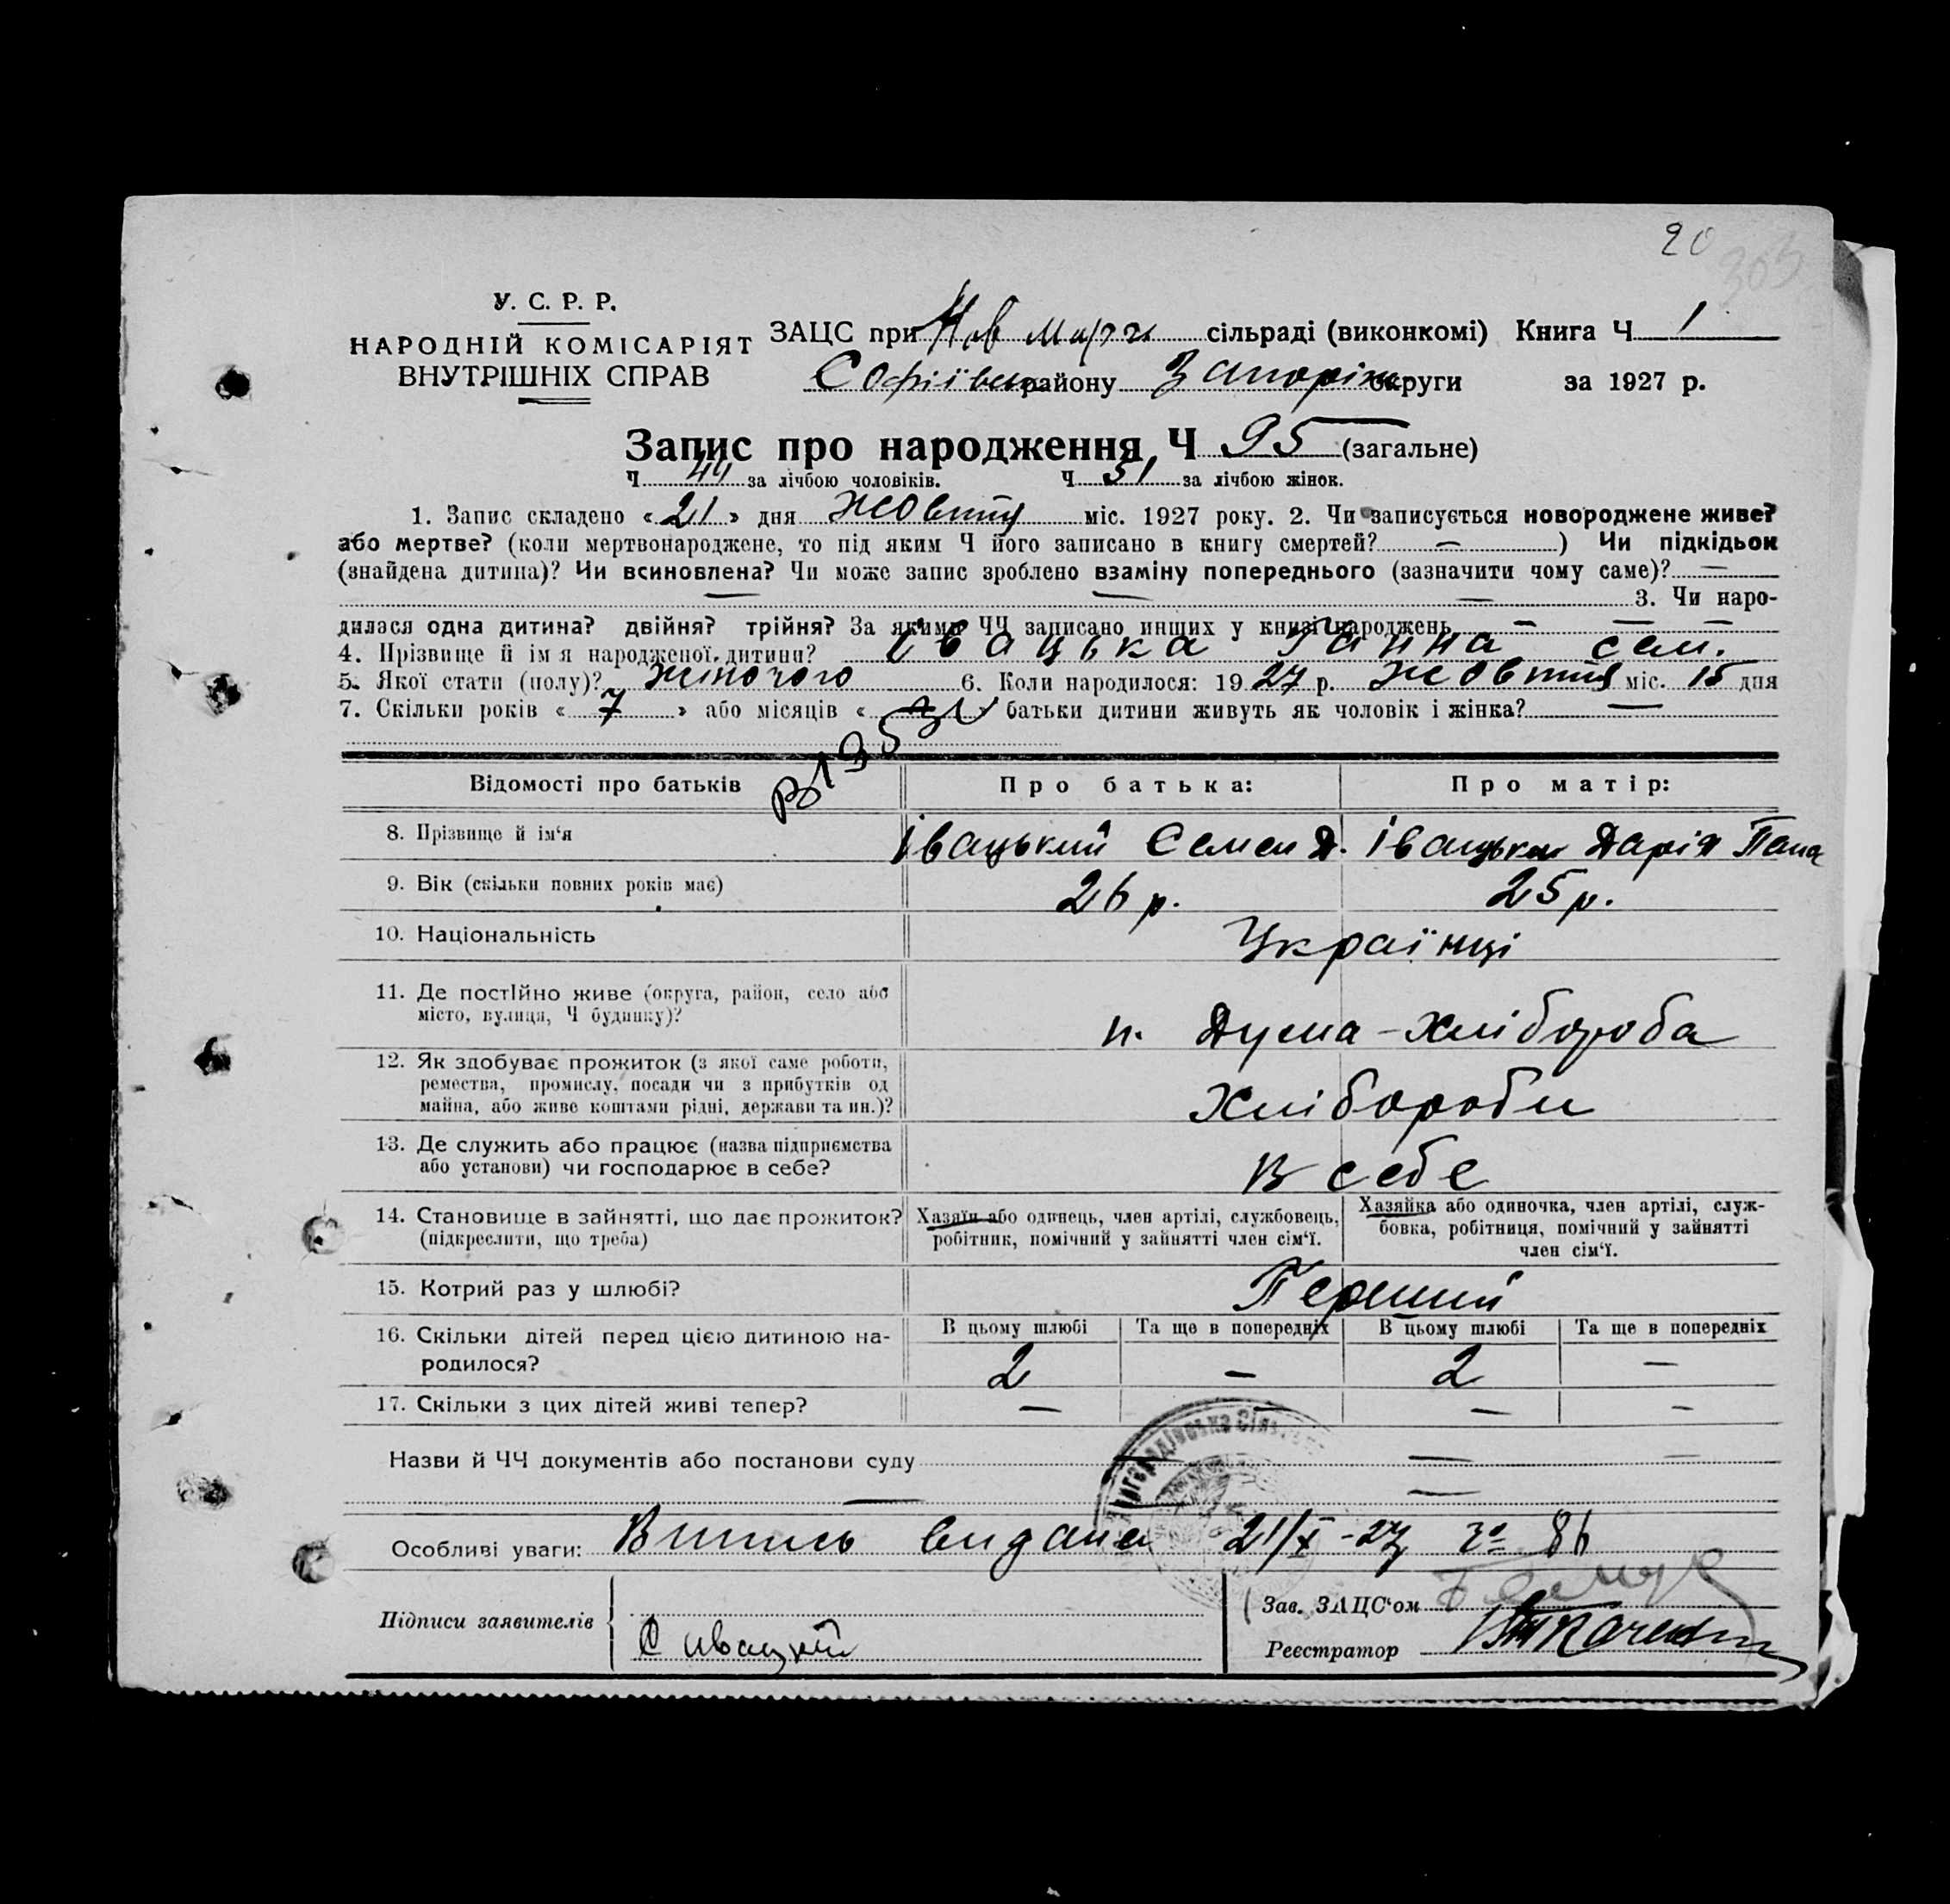 20
303
У. С. Р. Р.
НАРОДНІЙ КОМІСАРІЯТ
ВНУТРІШНІХ СПРАВ
ЗАЦС при Нов сільраді (виконкомі) Книга Ч 1
Софіївськ району Запоріж округи за 1927 р.
Запис про народження Ч 95 (загальне)
Ч 44 за лічбою чоловіків. Ч 51 за лічбою жінок.
1. Запис складено «21» дня жовтня міс. 1927 року. 2. Чи записується новороджене живе?
або мертве? (коли мертвонароджене, то під яким Ч його записано в книгу смертей? — ) Чи підкідьок
(знайдена дитина)? Чи всиновлена? Чи може запис зроблено взаміну попереднього (зазначити чому саме)? —
— — — 3. Чи наро-
дилася одна дитина? двійня? трійня? За якими ЧЧ записано инших у книзі народжень — — —
4. Прізвище й ім'я народженої дитини? Івацька Ганна Сем.
5. Якої стати (полу)? жіночого 6. Коли народилося: 1927 р. жовтня міс. 15 дня
7. Скільки років «7» або місяців « » батьки дитини живуть як чоловік і жінка? —
Відомості про батьків Про батька: Про матір:
8. Прізвище й ім'я Івацький Семен Д. Івацька Дарія Пана
9. Вік (скільки повних років має) 26 р. 25 р.
10. Національність Українці
11. Де постійно живе (округа, район, село або
місто, вулиця, Ч будинку)? п. Дума-Хлібороба
12. Як здобуває прожиток (з якої саме роботи,
ремества, промислу, посади чи з прибутків од
майна, або живе коштами рідні, держави та ин.)? Хлібороби
13. Де служить або працює (назва підприємства
або установи) чи господарює в себе? В себе
14. Становище в зайнятті, що дає прожиток? Хазяїн або одинець, член артілі, службовець, Хазяйка або одиночка, член артілі, служ-
(підкреслити, що треба) робітник, помічний у зайнятті член сім'ї. бовка, робітниця, помічний у зайнятті
член сім'ї.
15. Котрий раз у шлюбі? Перший
16. Скільки дітей перед цією дитиною на- В цьому шлюбі Та ще в попередніх В цьому шлюбі Та ще в попередніх
родилося? 2 — 2 —
17. Скільки з цих дітей живі тепер? — — — —
Назви й ЧЧ документів або постанови суду — —
— —
Особливі уваги: Випись видана 21/X-27 № 86
Підписи заявителів С Ивацкій
Зав. ЗАЦС'ом
Реєстратор